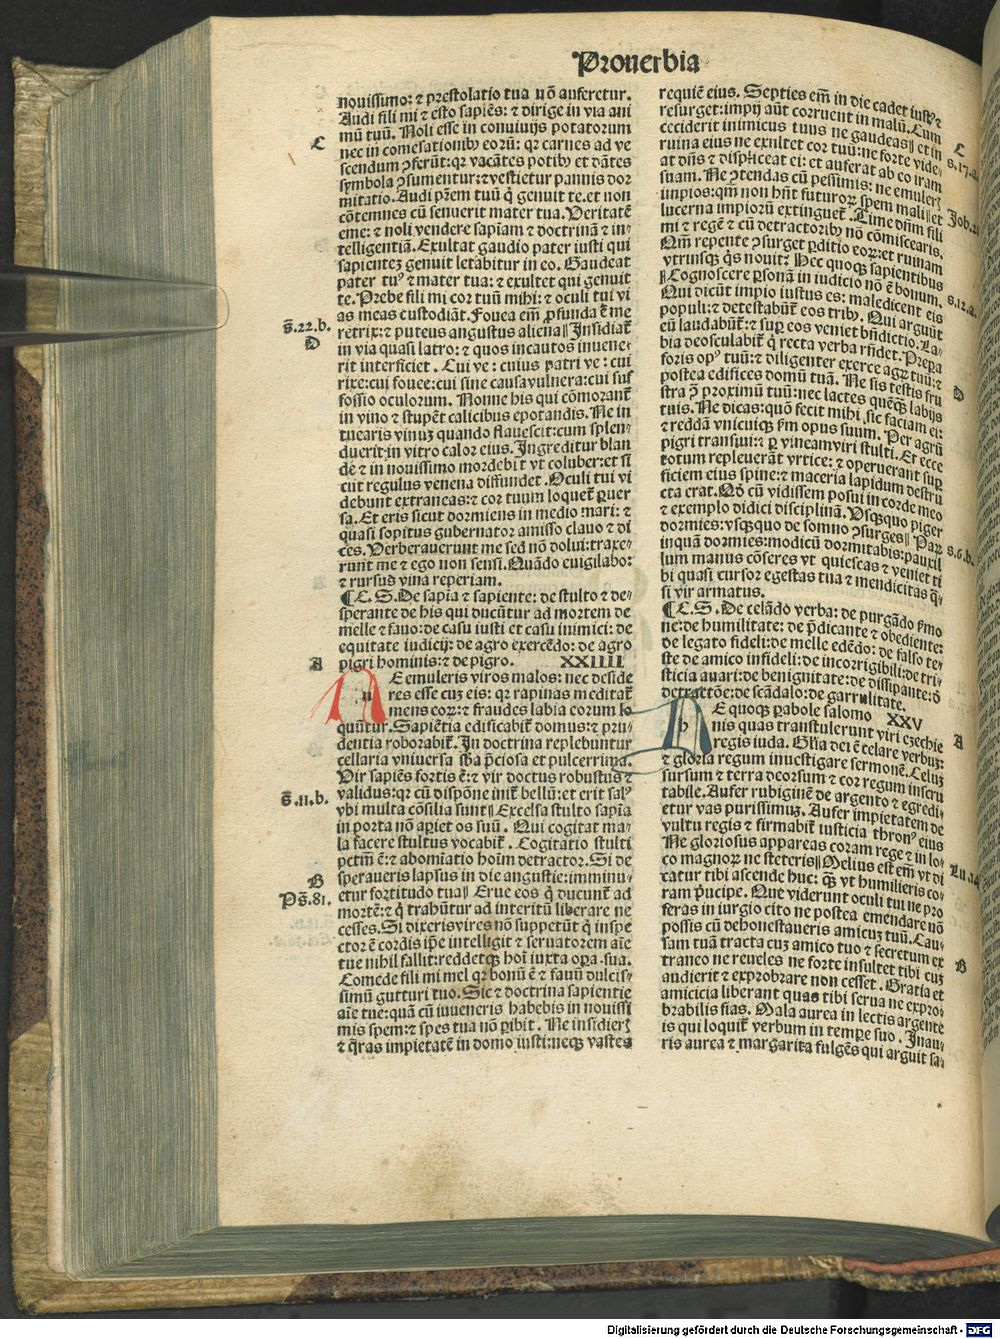 Prouerbia
nouissimo: ⁊ prestolatio tua nō auferetur.
Audi fili mi ⁊ esto sapiēs: ⁊ dirige in via ani
mū tuū. Noli esse in conuiuijs potatorum
nec in comesationibꝰ eorū: qꝛ carnes ad ve
scendum ꝯferūt: qꝛ vacātes potibꝰ et dātes
symbola ꝯsumentur: ⁊ vestietur pannis dor
mitatio. Audi prēm tuū q̄ genuit te. et non
cōtemnes cū senuerit mater tua. Veritatē
eme: ⁊ noli vendere sapiam ⁊ doctrinā ⁊ in⸗
telligentiā. Exultat gaudio pater iusti qui
sapienteꝫ genuit letabitur in eo. Gaudeat
pater tuꝰ ⁊ mater tua: ⁊ exultet qui genuit
te. Prebe fili mi cor tuū mihi: ⁊ oculi tui vi
as meas custodiāt. Fouea em̄ ꝓfunda ē me
retrix: ⁊ puteus angustus aliena‖ Insidiat᷑
in via quasi latro: ⁊ quos incautos inuene⸗
rit interficiet. Cui ve: cuius patri ve: cui
rixe: cui fouee: cui sine causa vulnera: cui suf
fossio oculorum. Nonne his qui cōmorant᷑
in vino ⁊ stupēt calicibus epotandis. Ne in
tuearis vinuꝫ quando flauescit: cum splen⸗
duerit in vitro calor eius. Ingreditur blan
de ⁊ in nouissimo mordebit vt coluber: et si
cut regulus venena diffundet. Oculi tui vi
debunt extraneas: ⁊ cor tuum loquet᷑ ꝑuer
sa. Et eris sicut dormiens in medio mari: ⁊
quasi sopitus gubernator amisso clauo ⁊ di
ces. Verberauerunt me sed nō dolui: traxe⸗
runt me ⁊ ego non sensi. Quādo euigilabo:
⁊ rursus vina reperiam.
¶ C. S. De sapia ⁊ sapiente: de stulto ⁊ de⸗
sperante de his qui ducūtur ad mortem de
melle ⁊ fauo: de casu iusti et casu inimici: de
equitate iudicij: de agro exercēdo: de agro
pigri hominis: ⁊ de pigro. XXIIII
NE emuleris viros malos: nec deside
res esse cuꝫ eis: qꝛ rapinas meditat᷑
mens eoꝝ: ⁊ fraudes labia eorum lo
quūtur. Sapiētia edificabit᷑ domus: ⁊ pru⸗
dentia roborabit᷑. In doctrina replebuntur
cellaria vniuersa sb̄a p̄ciosa et pulcerrima.
Vir sapiēs fortis ē: ⁊ vir doctus robustus ⁊
validus: qꝛ cū dispōne init᷑ bellū: et erit salꝰ
vbi multa cōsilia sunt‖ Excelsa stulto sapia
in porta nō aꝑiet os suū. Qui cogitat ma⸗
la facere stultus vocabit᷑. Cogitatio stulti
pctm̄ ē: ⁊ abomiatio hoim̄ detractor. Si de
speraueris lapsus in die angustie: imminu⸗
etur fortitudo tua‖ Erue eos q̄ ducunt᷑ ad
mortē: ⁊ q̄ trahūtur ad interitū liberare ne
cesses. Si dixeris vires nō suppetūt q̄ inspe
ctor ē cordis ip̄e intelligit ⁊ seruatorem aīe
tue nihil fallit: reddetqꝫ hoī iuxta oꝑa sua.
Comede fili mi mel qꝛ bonū ē ⁊ fauū dulcis⸗
simū gutturi tuo. Sic ⁊ doctrina sapientie
aīe tue: quā cū inueneris habebis in nouissi
mis spem: ⁊ spes tua nō ꝑibit. Ne insidieꝛꝫ
⁊ q̄ras impietatē in domo iusti: neqꝫ vastes
C
s̄.22.b.
D
A
s̄.11.b.
B
Ps̄.81.
requiē eius. Septies em̄ in die cadet iustꝰ ⁊
resurget: impij aūt corruent in malū. Cum
ceciderit inimicus tuus ne gaudeas‖ et in
ruina eius ne exultet cor tuū: ne forte vide⸗
at dn̄s ⁊ displiceat ei: et auferat ab eo iram
suam. Ne ꝯtendas cū pessimis: ne emuleꝛꝫ
impios: qm̄ non hn̄t futuroꝝ spem mali‖ et
lucerna impiorū extinguet᷑. Time dn̄m fili
mi ⁊ regē ⁊ cū detractoribꝰ nō cōmiscearis.
Qm̄ repente ꝯsurget ꝑditio eoꝝ: et ruinam
vtriusqꝫ q̄s nouit? Hec quoqꝫ sapientibus
‖Cognoscere ꝑsonā in iudicio nō ē bonum.
Qui dicūt impio iustus es: maledicent eis
populi: ⁊ detestabūt᷑ eos tribꝰ. Qui arguūt
eū laudabūt᷑: ⁊ suꝑ eos veniet bn̄dictio. La⸗
bia deosculabit᷑ q̄ recta verba rn̄det. Preꝑa
foris opꝰ tuū: ⁊ diligenter exerce agꝝ tuū: ⁊
postea edifices domū tuā. Ne sis testis fru
stra ꝯ̄ proximū tuū: nec lactes quēqꝫ labijs
tuis. Ne dicas: quō fecit mihi sic faciam ei:
⁊ reddā vnicuiqꝫ ẜm opus suum. Per agrū
pigri transiui: ⁊ ꝑ vineam viri stulti. Et ecce
totum repleuerāt vrtice: ⁊ operuerant suꝑ
ficiem eius spine: ⁊ maceria lapidum destru
cta erat. Qd̄ cū vidissem posui in corde meo
⁊ exemplo didici disciplinā. Vsqꝫquo piger
dormies: vsqꝫquo de somno ꝯsurges‖ Paꝝ
inquā dormies: modicū dormitabis: pauxil
lum manus cōseres vt quiescas ⁊ veniet ti
bi quasi cursor egestas tua ⁊ mendicitas q̄⸗
si vir armatus.
¶ C. S. De celādo verba: de purgādo ẜmo
ne: de humilitate: de p̄dicante ⁊ obediente:
de legato fideli: de melle edēdo: de falso te⸗
ste de amico infideli: de incorrigibili: de tri⸗
sticia auari: de benignitate: de dissipante: ō
detractōe: de scādalo: de garrulitate.
HE quoqꝫ ꝑabole salomo XXV
nis quas transtulerunt viri ezechie
regis iuda. Glīa dei ē celare verbuꝫ:
⁊ gloria regum inuestigare sermonē. Celuꝫ
sursum ⁊ terra deorsum ⁊ cor regum inscru
tabile. Aufer rubiginē de argento ⁊ egredi⸗
etur vas purissimuꝫ. Aufer impietatem de
vultu regis ⁊ firmabit᷑ iusticia thronꝰ eius
Ne gloriosus appareas coram rege ⁊ in lo⸗
co magnoꝝ ne steteris‖ Melius est em̄ vt di
catur tibi ascende huc: qꝫ vt humilieris co⸗
ram p̄ncipe. Que viderunt oculi tui ne pro
feras in iurgio cito ne postea emendare nō
possis cū dehonestaueris amicuꝫ tuū. Cau⸗
sam tuā tracta cuꝫ amico tuo ⁊ secretum ex
traneo ne reueles ne forte insultet tibi cuꝫ
audierit ⁊ exprobrare non cesset. Gratia et
amicicia liberant quas tibi serua ne expro⸗
brabilis fias. Mala aurea in lectis argente
is qui loquit᷑ verbum in tempꝛe suo. Inau⸗
ris aurea ⁊ margarita fulgēs qui arguit sa⸗
C
s.17.a.
Job.21
s.12.a.
D
s.6.b.
A
Lu.14
B
Digitalisierung gefördert durch die Deutsche Forschungsgemeinschaft - DFG